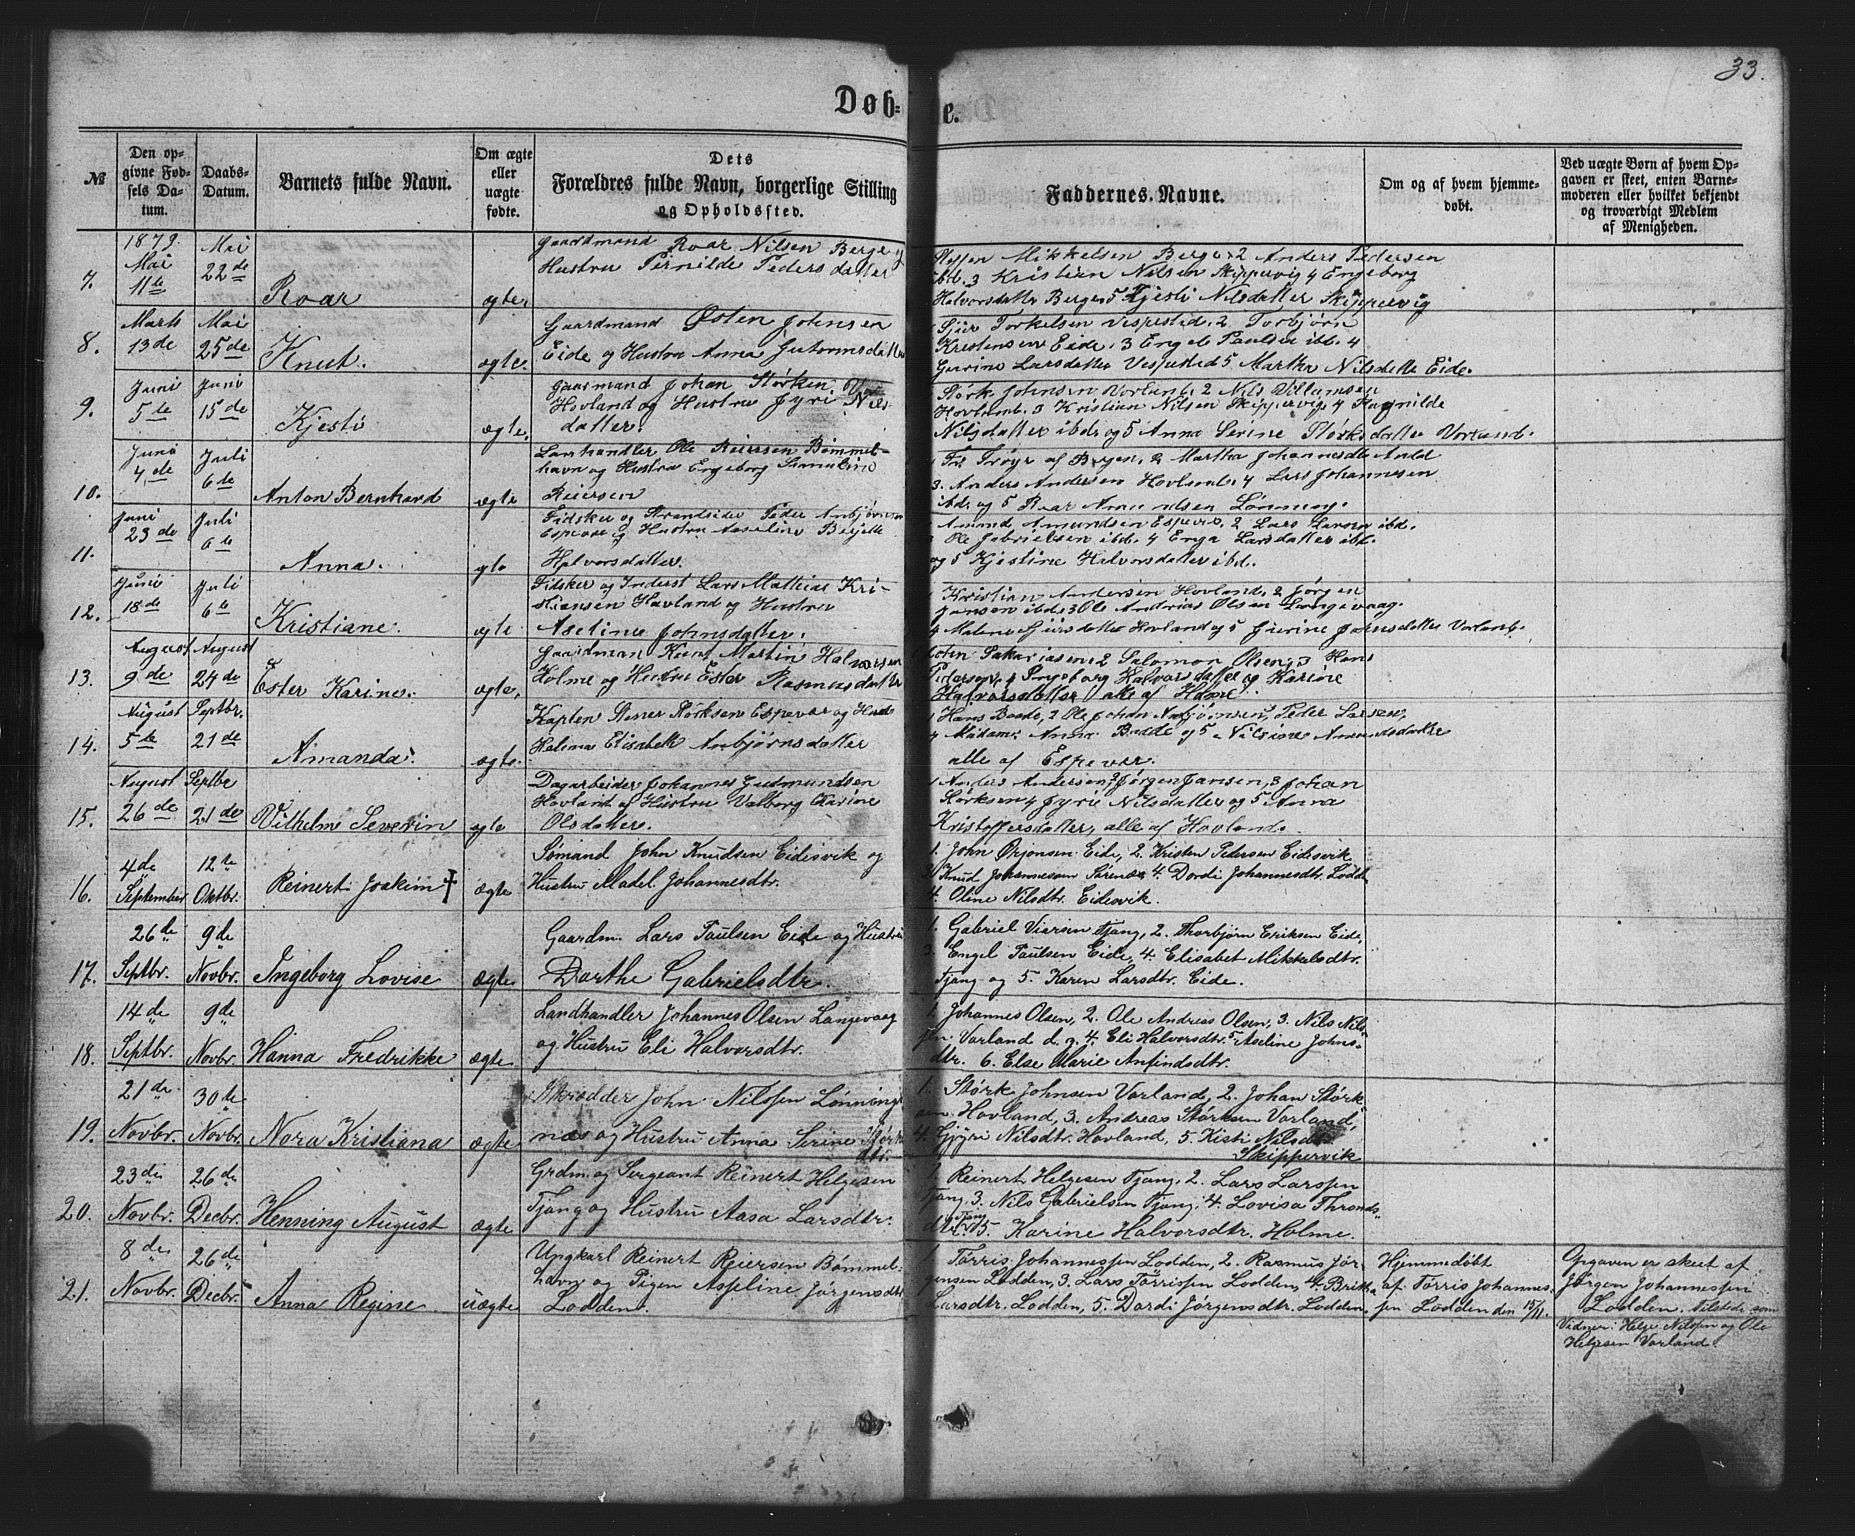 33.
Døbte.
№
Den opgivne Fødsels Datum.
Daabs-Datum.
Barnets fulde Navn.
Om ægte eller uægte fødte.
Dets Forældres fulde Navn, borgerlige Stilling og Opholdssted.
Faddernes Navne.
Om og af hvem hjemmedøbt.
Ved uægte Børn af hvem Opgaven er skeet, enten Barnemoderen eller hvilket bekjendt og troværdigt Medlem af Menigheden.
7. 1879. Mai 11te Mai 22de Roar ægte.
Gaardmand Roar Nilsen Berge og
Hustru Pernilde Pedersdatter
Mikkelsen Berge 2 Anders Pedersen
ibd. 3 Kristian Nilsen Skippervig 4 Engeborg
Halvorsdatter Berge 5 Kjesti Nilsdatter Skippervig
8. Marts 13de Mai 25de Knut. ægte.
Gaardmand Østen Johnsen
Eide og Hustru Anna Gutormsdatter
1 Sjur Torkelsen Vespestad. 2 Torbjørn
Kristensen Eide. 3 Engel Paulsen ibd. 4
Larsdatter Vespestad 5 Martha Nilsdatter Eide.
9. Juni 5te Juni 15de Kjesti ægte.
Gaarmand Johan Størksen
Hovland og Hustru Jyri Nils
datter.
Størk Johnsen Vorland, 2 Nils Villumsen
Hovland. 3 Kristian Nilsen Skippervig 4 Ragnilde
Nilsdatter ibd. og 5 Anna Serine Størksdatter Vorland.
10. Juni 4de Juli 6te Anton Bernhard ægte
Lanhandler Ole Reiersen Bømmel-
havn og Hustru Engeborg Simeline
Reiersen
1 Fr. Trøye af Bergen, 2 Martha Johannesdtr
3. Anders Andersen Hovland, 4 Lars Johannesen
ibd. og 5 Roar Amundsen Lønning.
11. Juni 23de Juli 6te Anna. ægte
Fidsker og Strandsider Peder Anbjørnsen
Espevær og Hustru Aaseline Berjette
Halvorsdatter.
Amund Amundsen Espevær, 2 Lars Larsen ibd.
3 Ole Gabrielsen ibd. 4 Enga Larsdatter ibd.
og 5 Kjestine Halvorsdatter ibd.
12. Juni 18de Juli 6te Kristiane. ægte
Fidsker og Inderst Lars Mathias Kri-
stiansen Hovland og Hustru
Aseline Johnsdatter.
1 Kristian Andersen Hovland, 2 Jørgen
Jansen ibd. 3 Ole Andrias Olsen Langevaag.
4 Malene Sjursdatter Hovland og 5 Gurine Johnsdatter Vorland.
13. August 9de August 24de Ester Karine. ægte,
Gaardman Knut Martin Halvorsen
Holme og Hustru Ester Rasmusdatter
John Sakariasen 2 Salomon Olsen, 3 Hans
Pedersen, 4 Ingeborg Halvorsdatter og Karine
Halvorsdatter alle af Holme.
14. August 5te Septbr. 21de Amanda. ægte.
Kapten Størksen Espevær og Hustru
Halina Elisabek Anbjørnsdatter
1 Hans Baade, 2 Ole Johan Anbjørnsen, Peder Larsen,
4 Madame Anna Baade og 5 Amundsdatter
alle af Espevær.
15. August 26de Septbr 21de Vilhelm Severin ægte
Dagarbeider Johannes Gudmundsen
Hovland og Hustru Valborg Karine
Olsdatter.
1 Anders Andersen, 2 Jørgen Jansen, 3 Johan
Størksen 4 Jyri Nilsdatter og 5 Anna
Kristoffersdatter, alle af Hovland.
16. 4de September 12te Oktbr. Reinert Joakim † ægte
Sømand John Knudsen Eidesvik og
Hustru Madel Johannesdtr.
1. John Ørjansen Eide, 2. Kristen Pedersen Eidesvik
3 Knud Johannesen 4. Dordi Johannesdtr. Lodden
4. Oline Nilsdtr. Eidesvik.
17. 26de Septbr. 9de Novbr. Ingeborg Lovise ægte
Gaardm. Lars Paulsen Eide og Hustru
Dorthe Gabrielsdtr.
1. Gabriel Viersen Tjang, 2. Thorbjørn Eriksen Eide,
3. Engel Paulsen Eide, 4. Elisabet Mikkelsdtr.
Tjang og 5. Karen Larsdtr. Eide.
18. 14de Septbr. 9de Novbr. Hanna Fredrikke ægte
Landhandler Johannes Olsen Langevaag
og Hustru Eli Halvorsdtr.
1. Johannes Olsen, 2. Ole Andreas Olsen, 3. Nils Nils-
Vorland d. y. 4. Eli Halvorsdtr. 5 Aseline Johns-
dtr. 6. Else Marie Anfindsdtr.
19. 21de Novbr. 30te Novbr. Nora Kristiana ægte
Skrædder John Nilssen Lønnings
næs og Hustru Anna Serine Størks
dtr.
1. Størk Johnsen Vorland, 2. Johan Størk-
sen Hovland, 3. Andreas Størksen Vorland,
4. Gjøri Nilsdtr. Hovland, 5. Kisti Nilsdtr.
Skippervik
20. 23de Novbr. 26de Decbr. Henning August ægte
Grdm. og Sergeant Reinert Helgesen
Tjang og Hustru Aasa Larsdtr.
1. Reinert Helgesen Tjang, 2. Lars Larssen
Tjang 3. Nils Gabrielsen Tjang, 4. Lovisa Thronds-
dtr. Tjang 5. Karine Halvorsdtr. Holme.
21. 8de Novbr. 26de Decbr. Anna Regine uægte
Ungkarl Reinert Reiersen Bømmel-
havn og Pigen Asseline Jørgensdtr.
Lodden.
1. Tørris Johannessen Lodden, 2. Rasmus Jør-
gensen Lodden, 3. Lars Tørrissen Lodden, 4. Britha
Larsdtr. Lodden, 5. Dordi Jørgensdtr. Lodden.
Hjemmedøbt
af Tørris Johannes-
sen Lodden den 15/11.
Opgaven er skeet af
Jørgen Johannessen
Lodden. Tilstede som
Vidner: Helge Nilssen og Ole
Helgesen Vorland.